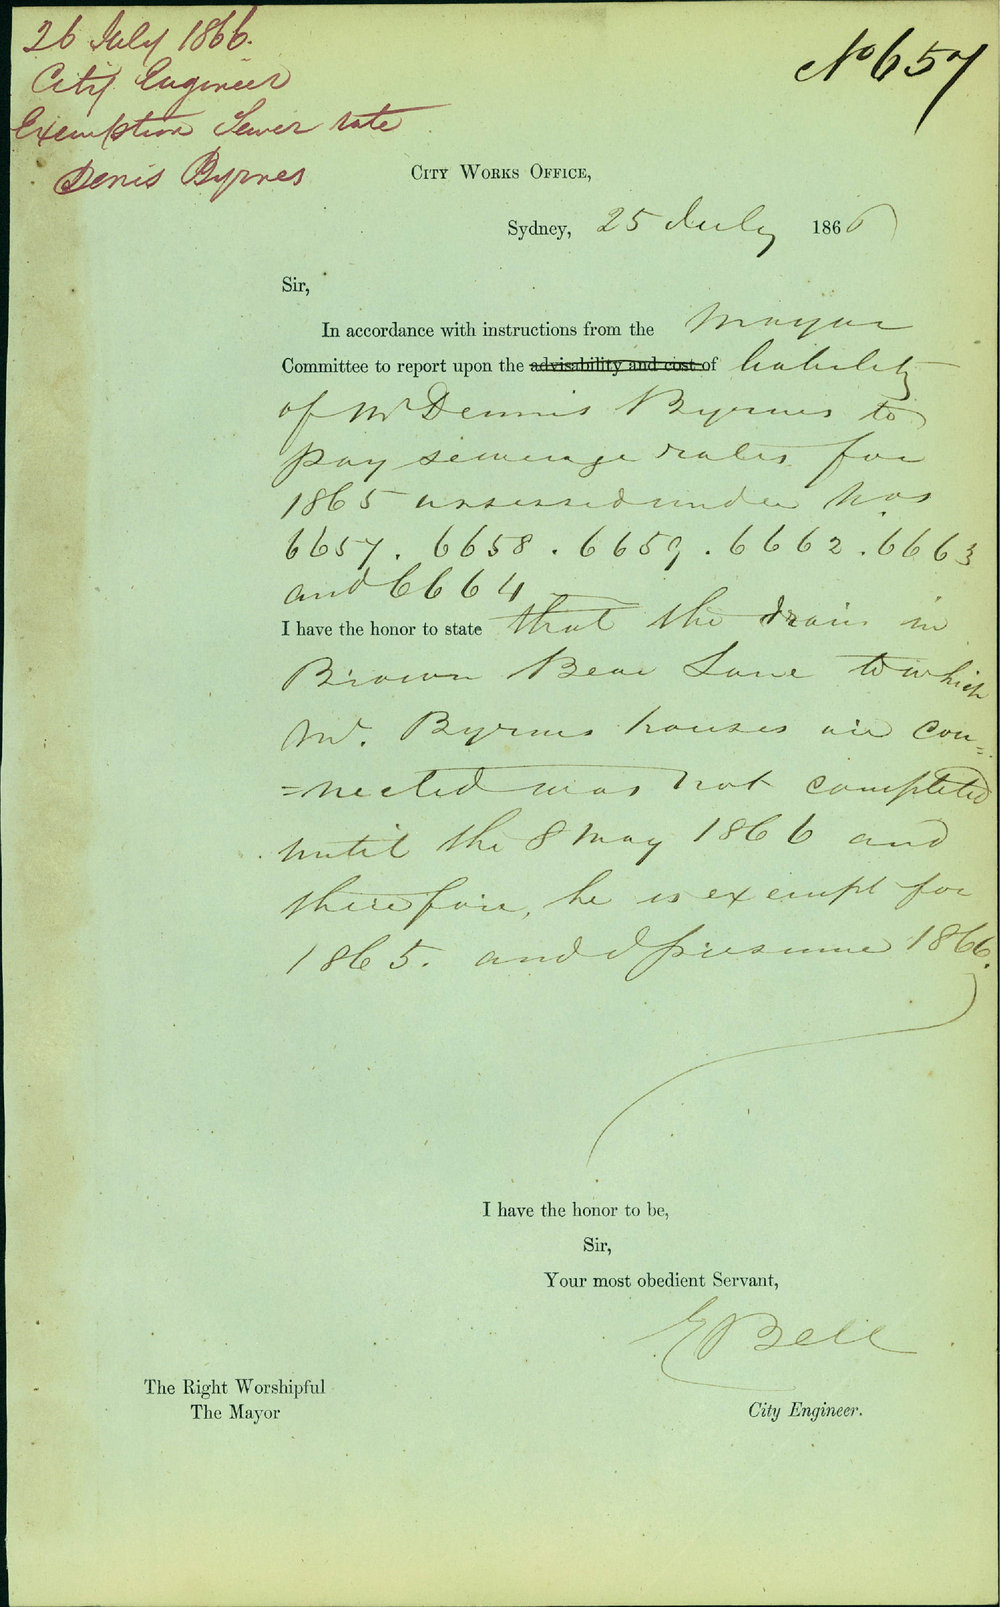 26 July 1866.
City Engineer
Exemption Sewer rate
Denis Byrnes
No 657
CITY WORKS OFFICE,
Sydney, 25 July 1866
Sir,
In accordance with instructions from the Mayor
Committee to report upon the advisability and cost of liability
of Mr Dennis Byrnes to
pay sewerage rates for
1865 assessed under Nos
6657. 6658. 6659. 6662. 6663
and 6664
I have the honor to state that the drain in
Brown Bear Lane to which
Mr. Byrnes houses are con=
=nected was not completed
until the 8 May 1866 and
therefore, he is exempt for
1865. and I presume 1866.
I have the honor to be,
Sir,
Your most obedient Servant,
E Bell
City Engineer.
The Right Worshipful
The Mayor